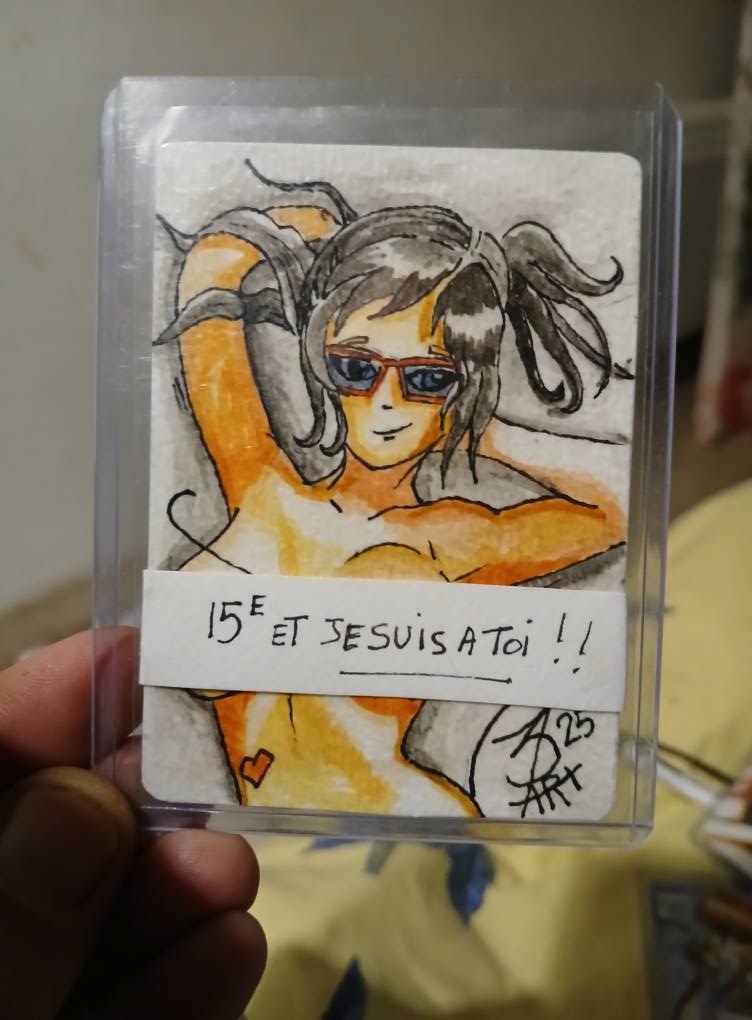 15E ET JE SUIS A TOI !!
25
ART